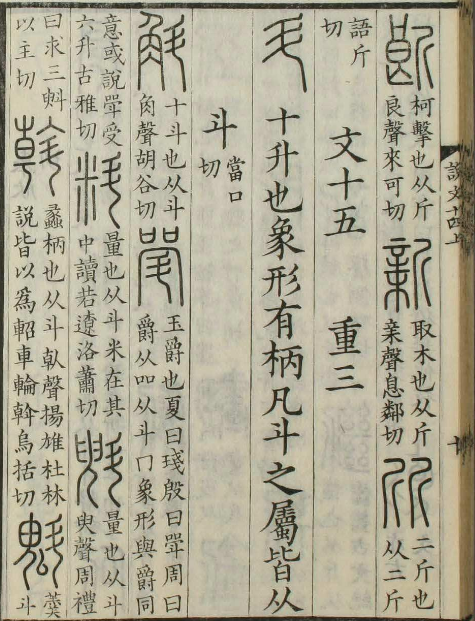 𣃁柯擊也从斤良聲來可切新取木也从斤亲聲息鄰切斦二斤也从二斤
語斤切文十五 重三
斗十升也象形有柄凡斗之屬皆从
斗當口切
斛十斗也从斗角聲胡谷切斝玉爵也夏曰琖殷曰斝周曰爵从吅从斗冂象形與爵同
意或說斝受六升古雅切料量也从斗米在其中讀若遼洛蕭切斞量也从斗臾聲周禮
曰求三斞以主切斡蠡柄也从斗倝聲揚雄杜林說皆以爲軺車輪斡烏括切魁羹斗